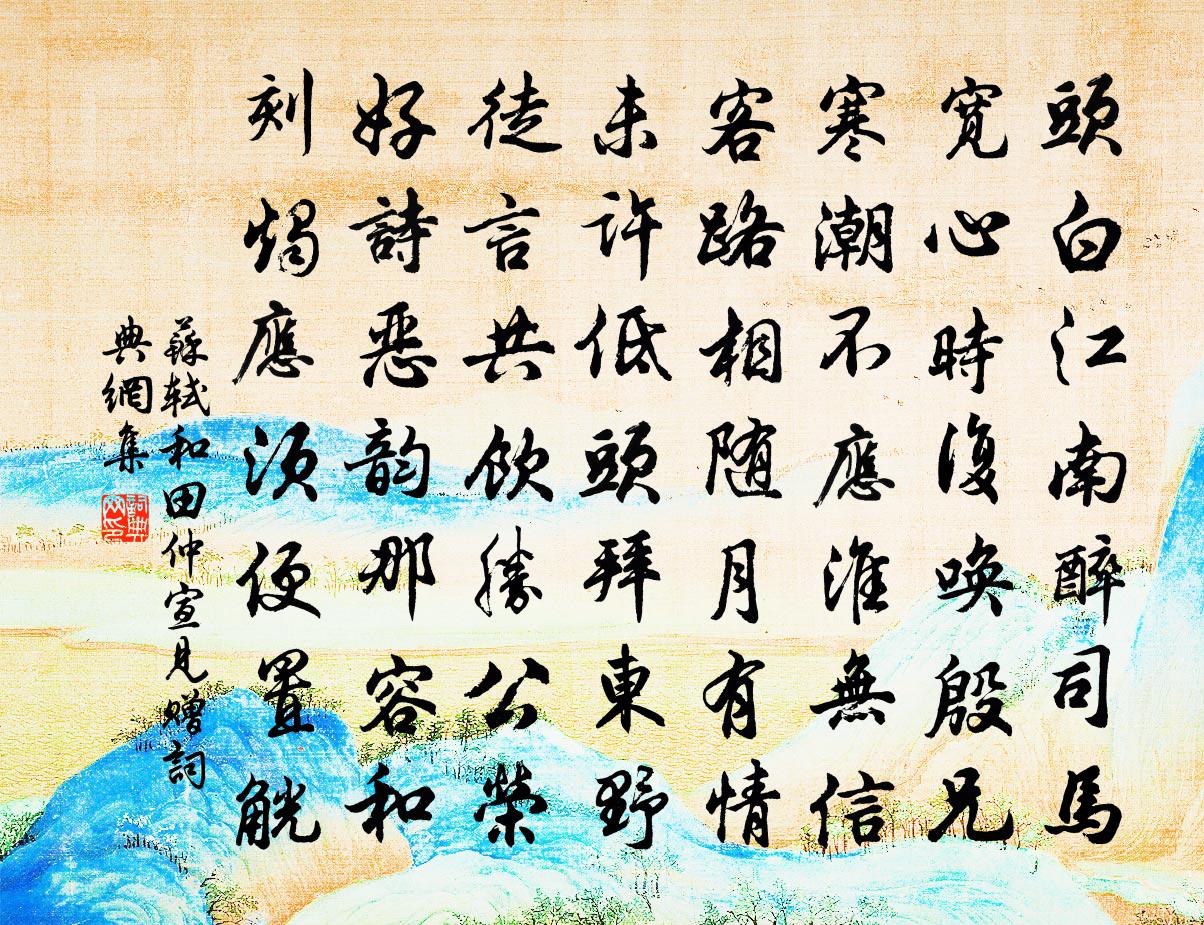 頭白江南醉司馬
寬心時復喚殷兄
寒潮不應淮無信
客路相随月有情
未許低頭拜東野
徒言共飲勝公榮
好詩惡韵那容和
刻燭應須便置觥
蘇軾和田仲宣見贈詞
典網集
詞典
网印